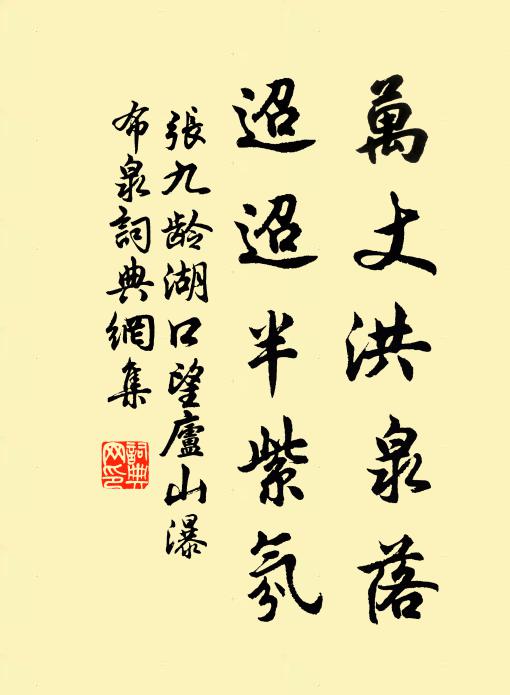 萬丈洪泉落
迢迢半紫氛
張九齡湖口望廬山瀑
布泉詞典網集
詞典網印